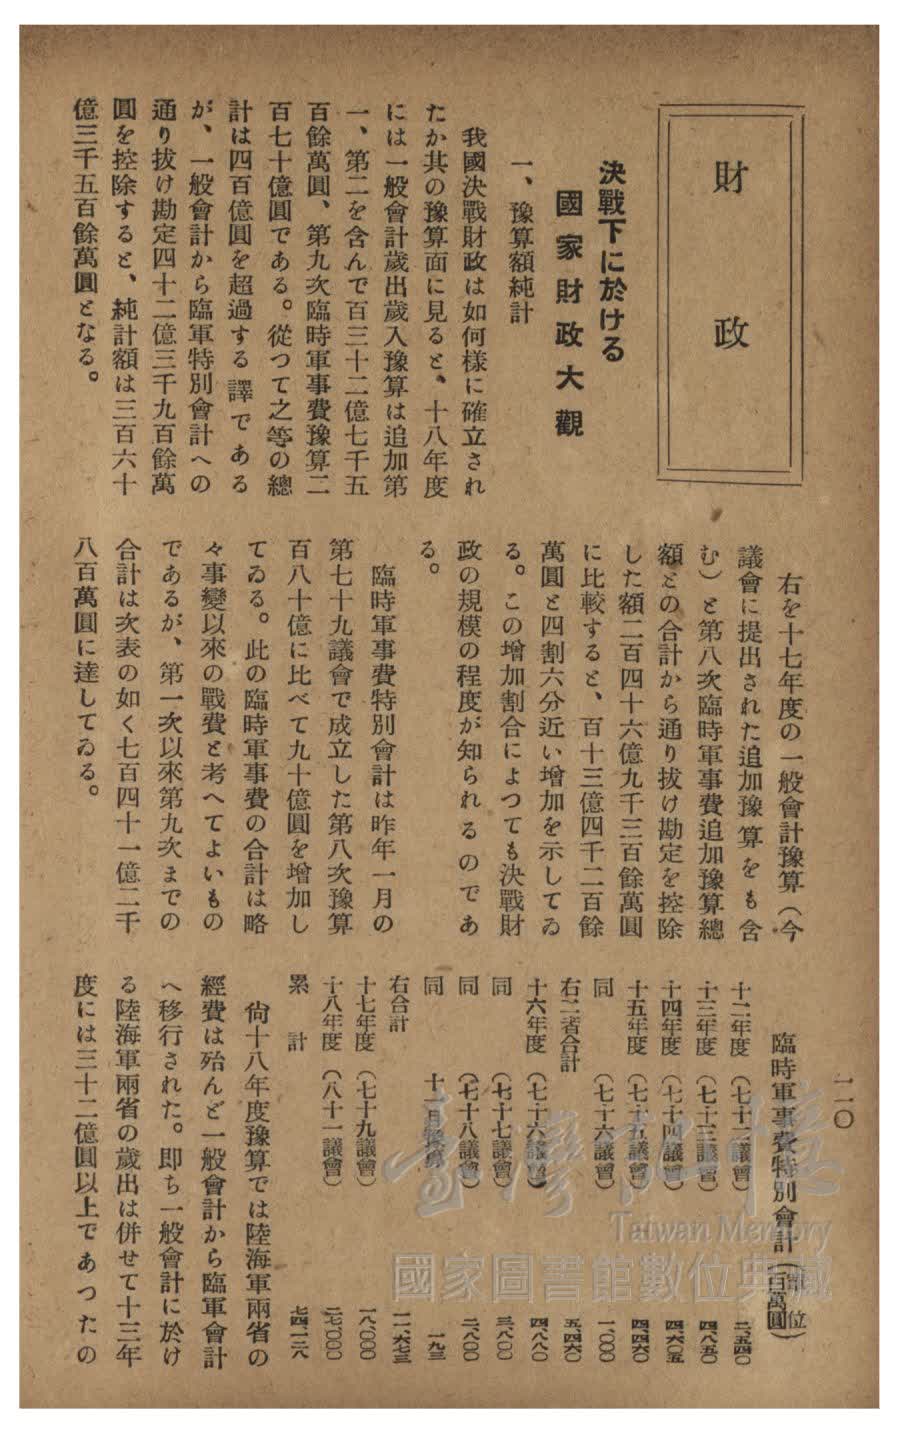 一一〇
財政
決戰下に於ける
國家財政大觀
一、豫算額純計
我國決戰財政は如何樣に確立され
たか其の豫算面に見ると、十八年度
には一般會計歲出歲入豫算は追加第
一、第二を含んで百三十二億七千五
百餘萬圓、第九次臨時軍事費豫算二
百七十億圓である。從つて之等の總
計は四百億圓を超過する譯である
が、一般會計から臨軍特別會計への
通り拔け勘定四十二億三千九百餘萬
圓を控除すると、純計額は三百六十
億三千五百餘萬圓となる。
右を十七年度の一般會計豫算(今
議會に提出された追加豫算をも含
む)と第八次臨時軍事費追加豫算總
額との合計から通り拔け勘定を控除
した額二百四十六億九千三百餘萬圓
に比較すると、百十三億四千二百餘
萬圓と四割六分近い增加を示してゐ
る。この增加割合によつても決戰財
政の規模の程度が知られるのであ
る。
臨時軍事費特別會計は昨年一月の
第七十九議會で成立した第八次豫算
百八十億に比べて九十億圓を增加し
てゐる。此の臨時軍事費の合計は略
々事變以來の戰費と考へてよいもの
であるが、第一次以來第九次までの
合計は次表の如く七百四十一億二千
八百萬圓に達してゐる。
臨時軍事費特別會計(單位百萬圓)
十二年度(七十二議會) 二、五四〇
十三年度(七十三議會) 四、八五〇
十四年度(七十四議會) 四六〇五
十五年度(七十五議會) 四四六〇
同(七十六議會) 一、〇〇〇
右二省合計 五、四六〇
十六年度(七十六議會) 四、八八〇
同(七十七議會) 三、八〇〇
同(七十八議會) 二、八〇〇
同 十二月豫算 一九三
右合計 一一、六七三
十七年度(七十九議會) 一八、〇〇〇
十八年度(八十一議會) 二七、〇〇〇
累計 七四、一二八
尙十八年度豫算では陸海軍兩省の
經費は殆んど一般會計から臨軍會計
へ移行された。卽ち一般會計に於け
る陸海軍兩省の歲出は併せて十三年
度には三十二億圓以上であつたの
臺灣記憶
Taiwan Memory
國家圖書館數位典藏